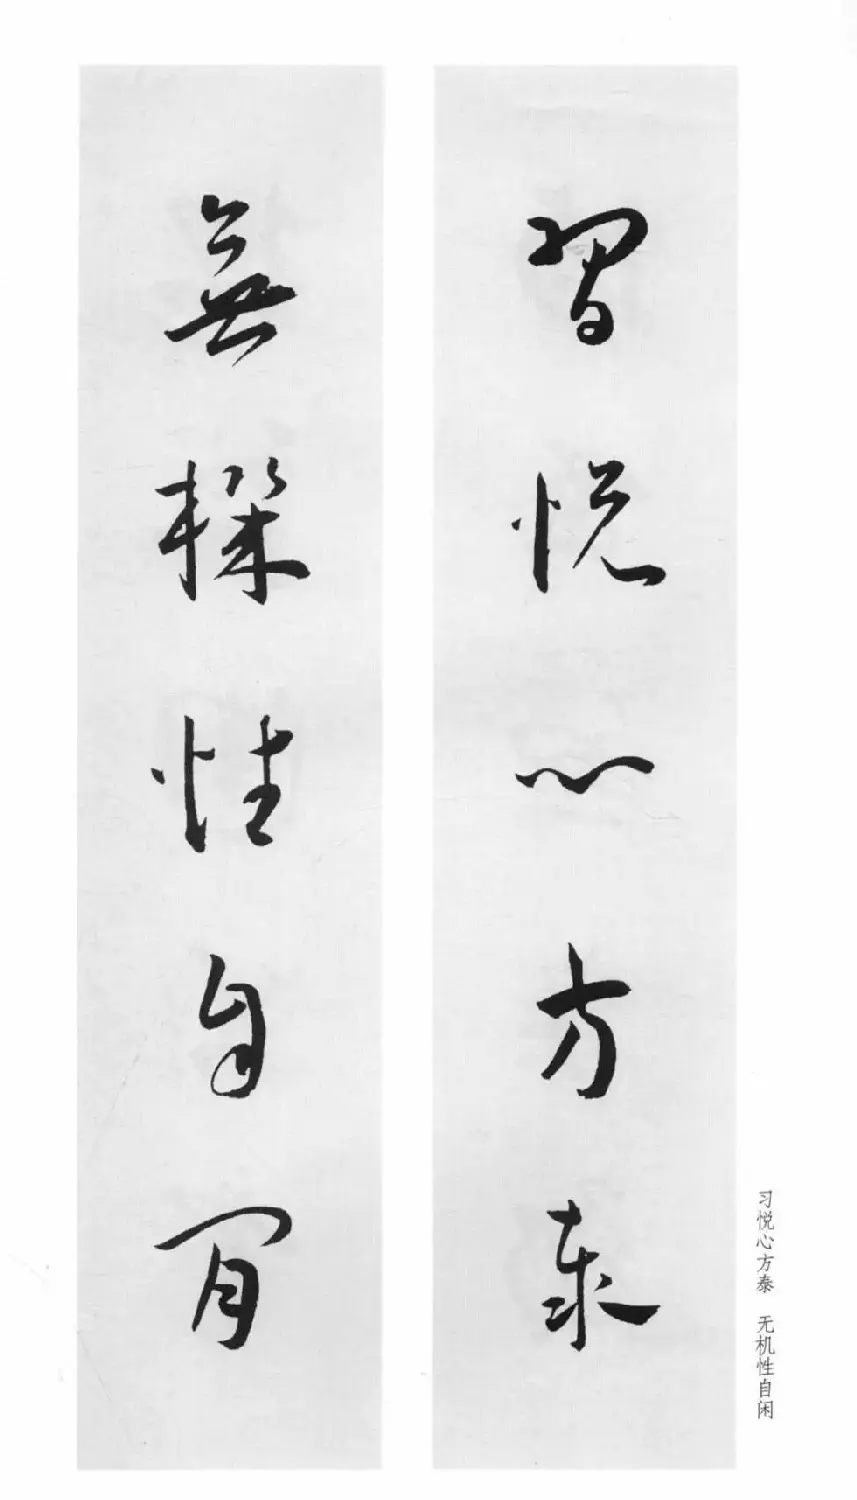 習悅心方泰
無機性自閒
习悦心方泰 无机性自闲